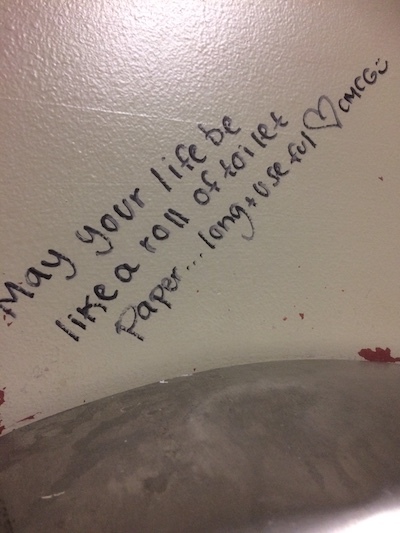 May your life be
like a roll of toilet
Paper... long + useful ♡ CMCG